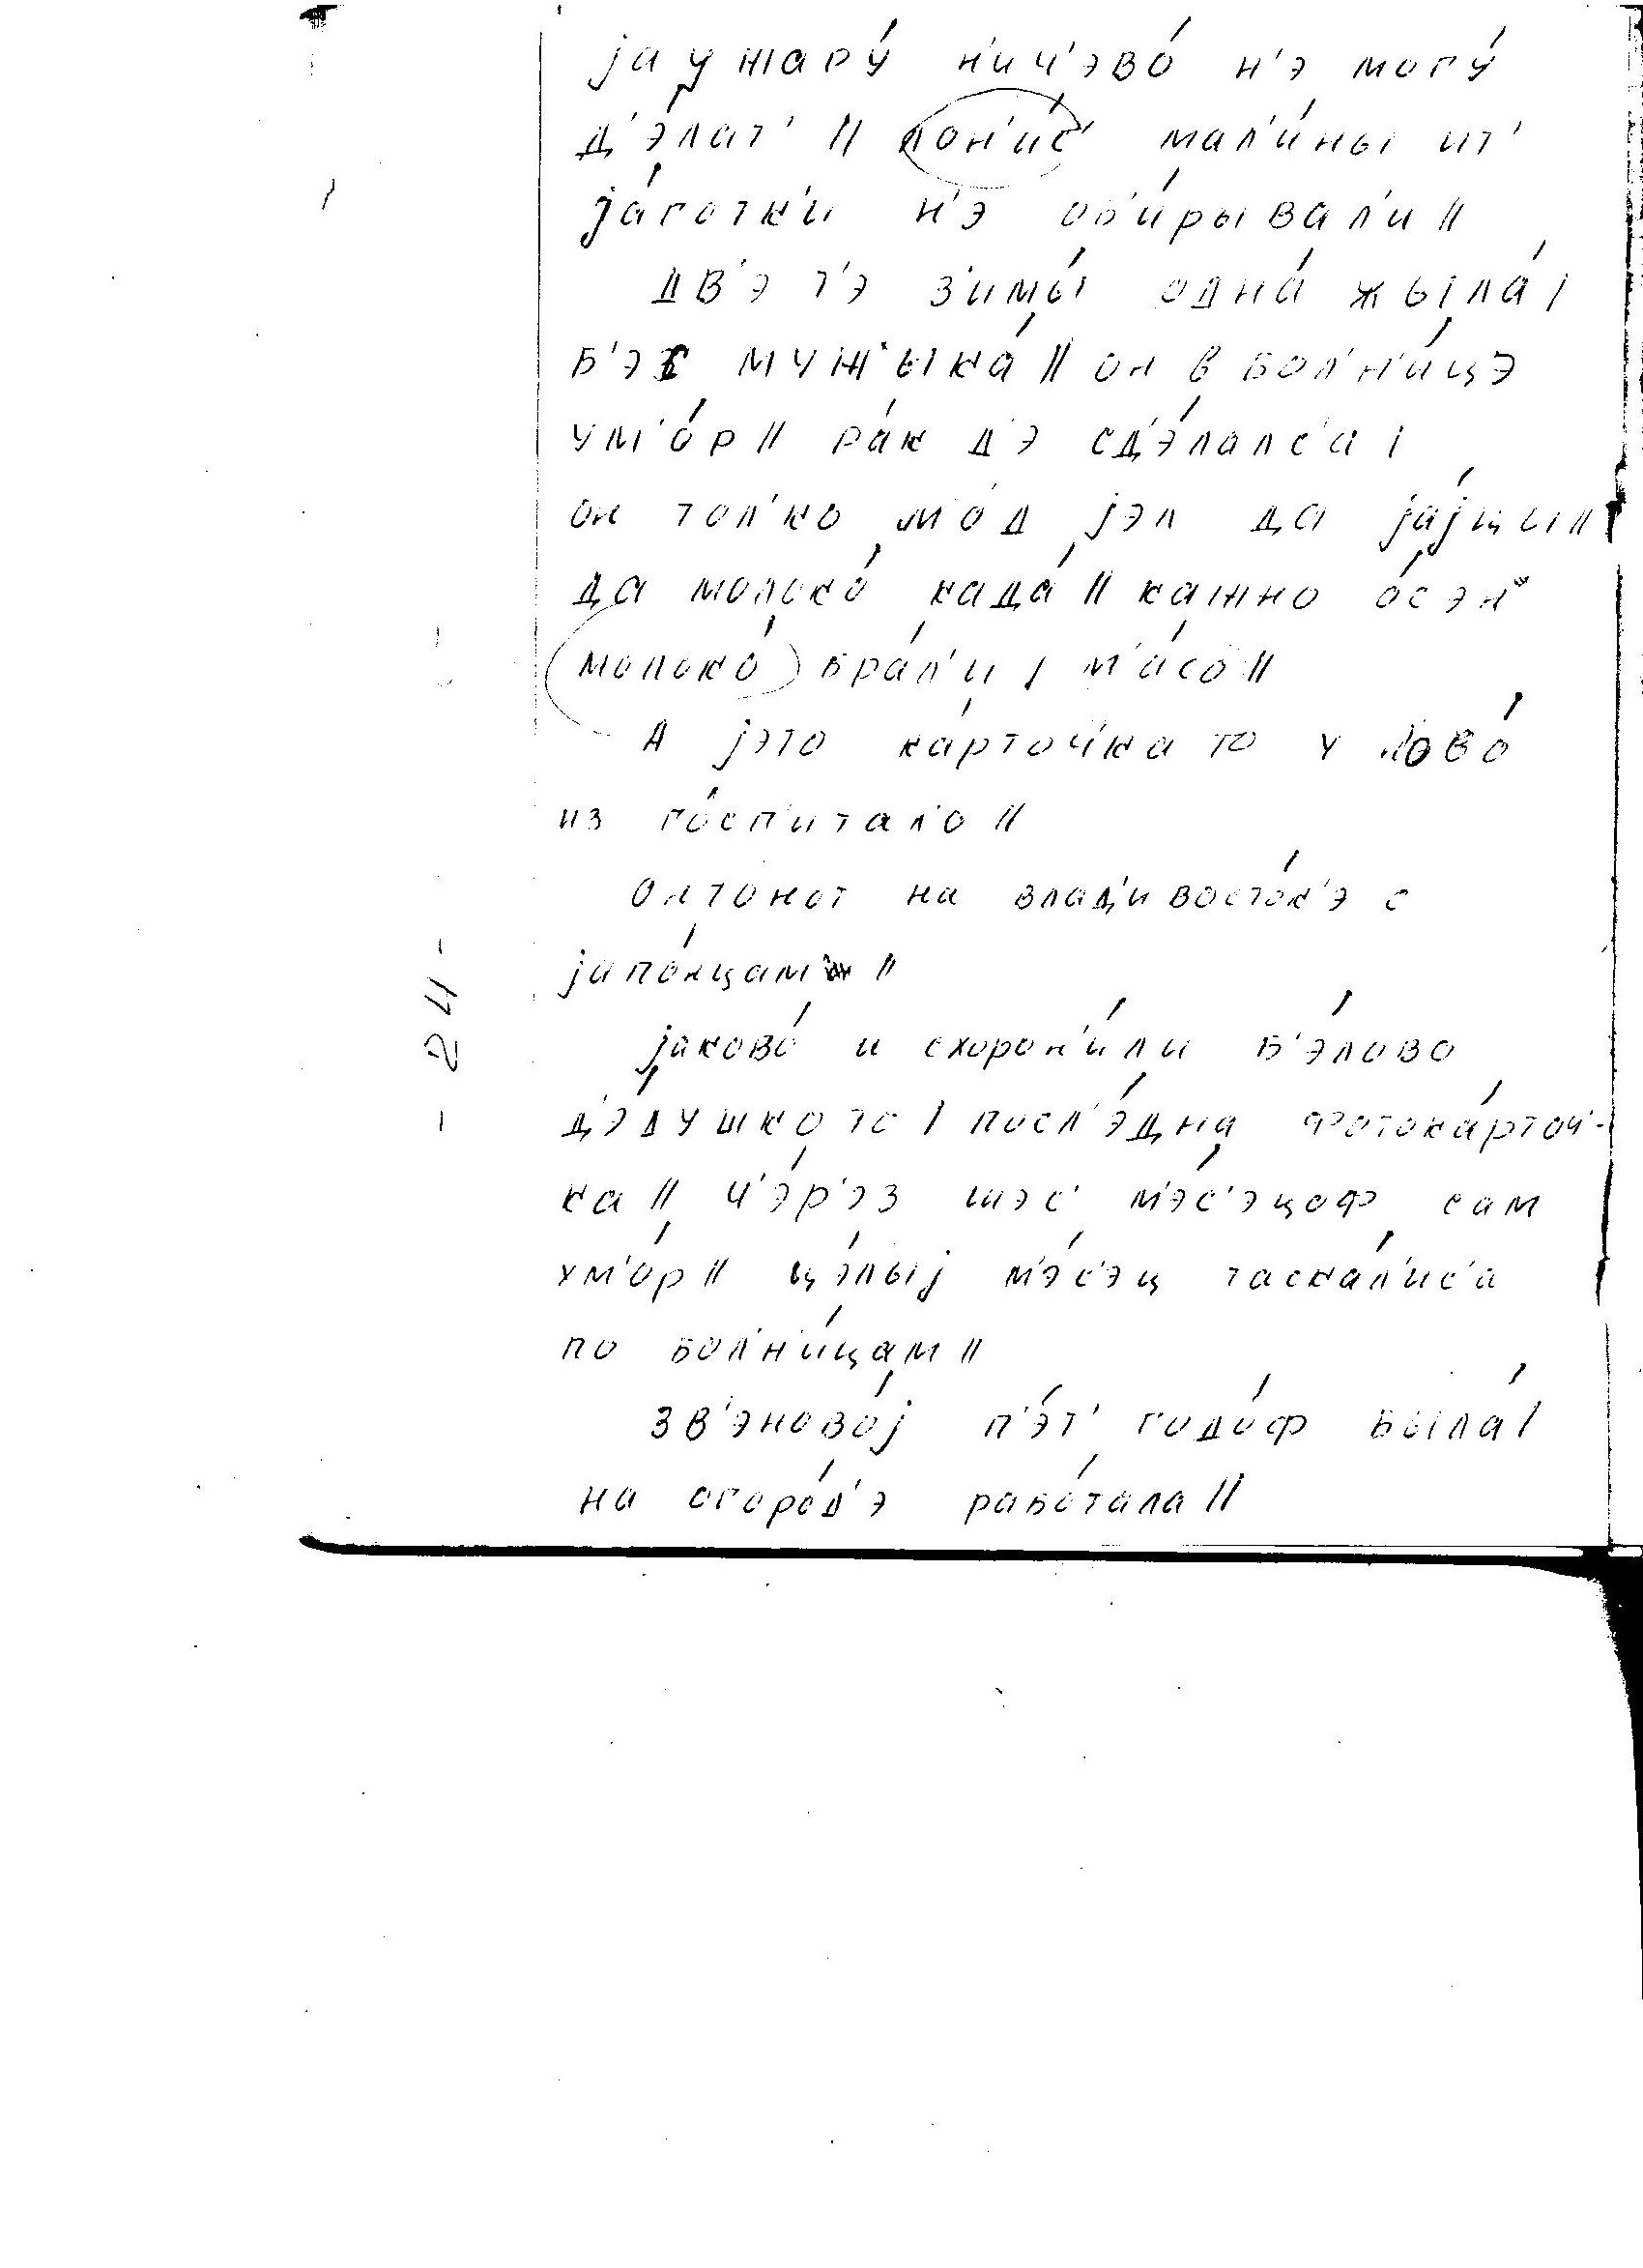 jа у жару́ н'ич'эво́ н'э могу́
д'э́лат' || лон'и́с' мал'и́ны ит'
jа́готк'и н'э об'и́рывал'и ||
дв'э т'э з'имы́ одна́ жыла́ |
б'эс мужыка́ || он в бол'н'и́цэ
ум'о́р || ра́к д'э сд'э́лалс'а |
он тол'ко м'о́д jэл да jа́jцы ||
да молоко́ када́ || кажно о́сэн'
молоко́ бра́л'и | м'а́со ||
А jэто ка́рточ'ка то у jово́
из го́сп'итал'о ||
он тонот на влад'ивосто́к'э с
jапо́нцам ||
jаково́ и схорон'и́ли б'э́лово
д'э́душко то | посл'э́дна фотока́рточ'-
ка || ч'э́р'эз шэс' м'э́с'эцоф сам
ум'о́р || цэ́лыj м'э́с'эц таска́л'ис'а
по бол'н'и́цам ||
зв'эново́j п'э́т' годо́ф была́ |
на огоро́д'э рабо́тала ||
- 24 -